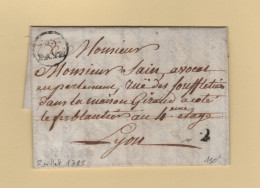 Monsieur
Monsieur Sain, avocat
en parlement, rue des fouettiers
dans la maison Giraud a coté
le ferblantier au 4eme etage
Lyon
2
Juillet 1785